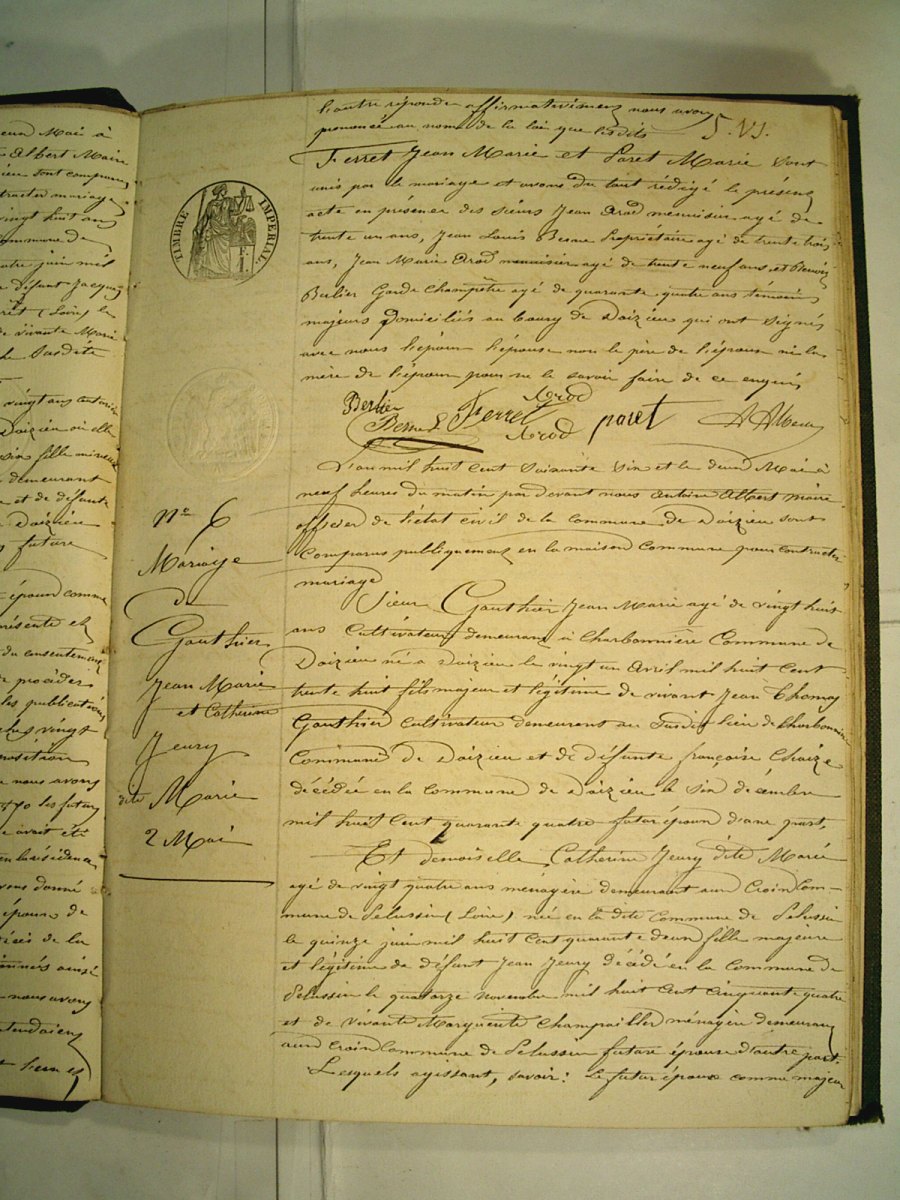 eun Mai à
Albert Maire
sont comparus
contracter mariage
vingt huit ans
commune de
juin mil
défunt Jacques
(Loire) le
de vivante Marie
susdite
vingt ans
Doizieu où elle
fille mineure
demeurant
et de défunte
Doizieu
future
époux comme
présente et
du consentement
procéder
les publications
vingt
nous avons
les futurs
avait été
en la résidence
donné
épouse de
de la
ainsi
nous avons
entendaient
l'autre répondu affirmativement nous avons
prononcé au nom de la loi que lesdits
5. VJ.
Ferret Jean Marie et Paret Marie sont
unis par le mariage et avons du tout rédigé le présent
acte en présence des sieurs Jean Arod menuisier agé de
trente un ans, Jean Louis Besne Propriétaire agé de trente trois
ans, Jean Marie Arod menuisier agé de trente neuf ans, et Benoit
Berlier Garde champêtre agé de quarante quatre ans témoins
majeurs Domiciliés au bourg de Doizieu qui ont signés
avec nous l'époux l'épouse non le père de l'épouse ni la
mère de l'époux pour ne le savoir faire de ce enquis
Berlier Ferret Arod
Arod paret A Albert
TIMBRE IMPERIAL.
L'an mil huit cent soixante six et le deux Mai à
neuf heures du matin par devant nous Antoine Albert maire
officier de l'état civil de la commune de Doizieu sont
comparus publiquement en la maison commune pour contracter
mariage
No 6
Mariage
de
Gauthier
Jean Marie
et Catherine
Jeury
dite Marie
2 Mai
Sieur Gauthier Jean Marie agé de vingt huit
ans Cultivateur demeurant à Charbonnière Commune de
Doizieu né à Doizieu le vingt un Avril mil huit cent
trente huit fils majeur et légitime de vivant Jean Thomas
Gauthier cultivateur demeurant au susdit lieu de Charbonnière
Commune de Doizieu et de défunte françoise Chaize
décédée en la Commune de Doizieu le six décembre
mil huit cent quarante quatre futur époux d'une part,
Et demoiselle Catherine Jeury dite Marie
agé de vingt quatre ans ménagère demeurant aux Croix Com-
mune de Pelussin (Loire) née en la dite Commune de Pelussin
le quinze juin mil huit cent quarante deux fille majeure
et légitime de défunt Jean Jeury décédé en la Commune de
Pelussin le quatorze novembre mil huit cent cinquante quatre
et de vivante Marguerite Champailler ménagère demeurant
aux Croix Commune de Pelussin future épouse d'autre part.
Lesquels agissant, savoir: le futur époux comme majeur